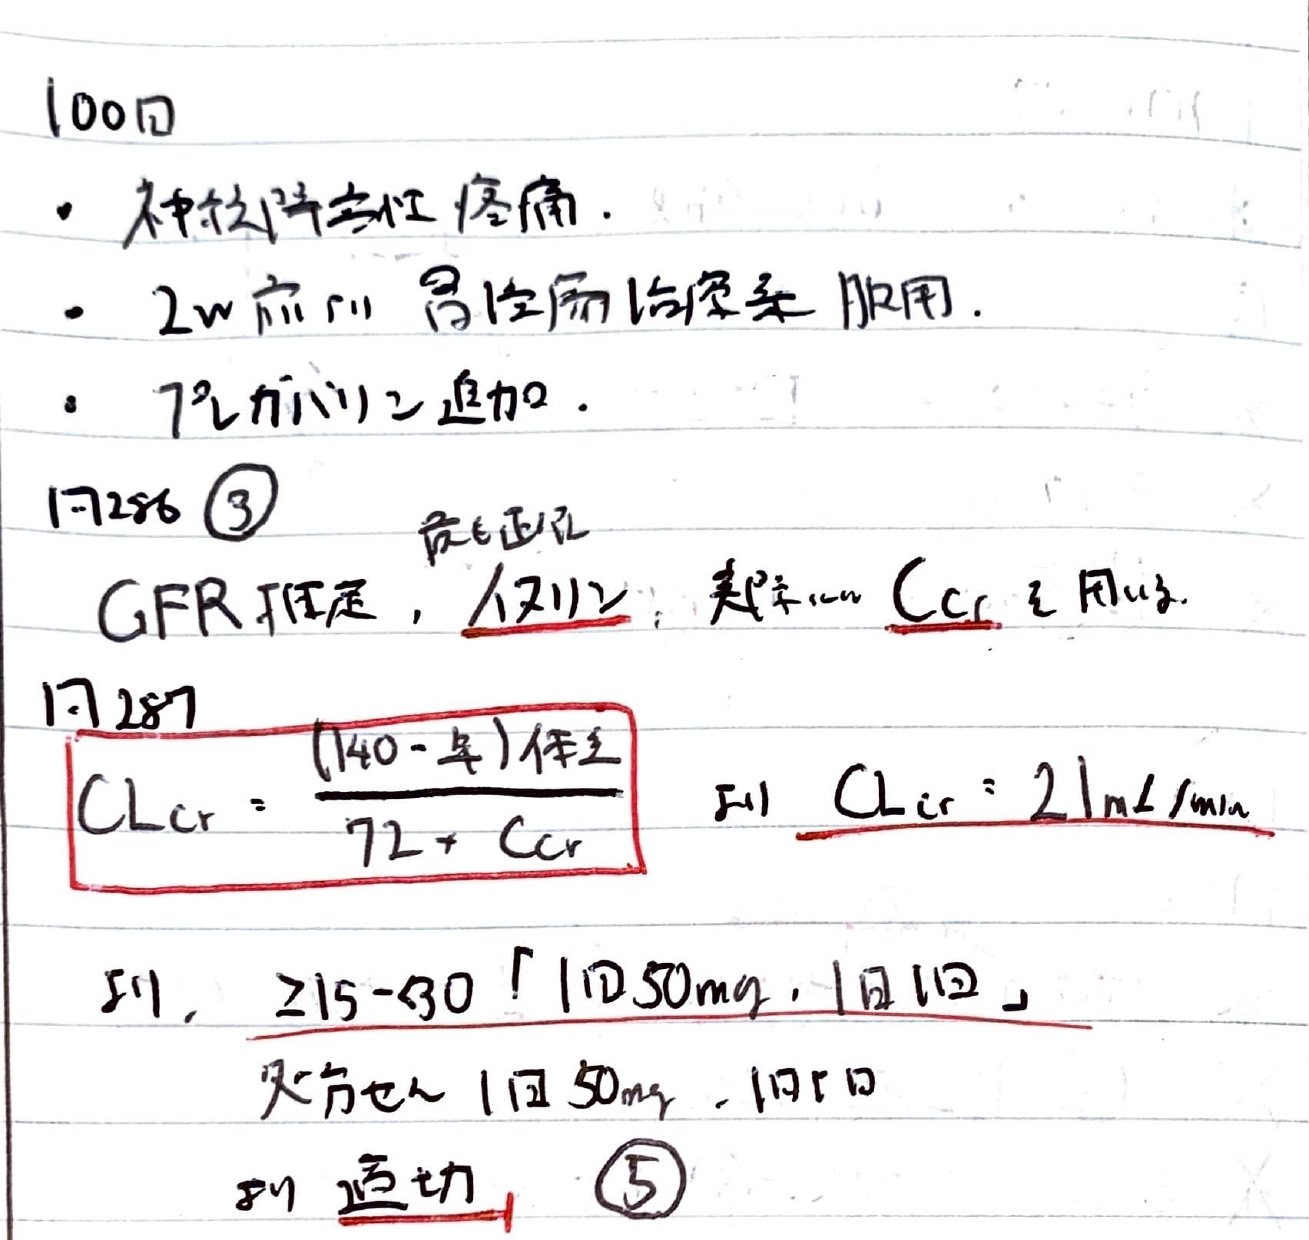 100回
・神経障害性疼痛.
・2w前より 胃潰瘍治療薬 服用.
・プレガバリン追加.
問286 ③
最も正確
GFR推定, イヌリン, Ccrを用いる.
問287
CLcr = (140-年)体重 / 72 * Ccr より CLcr = 21mL/min
より, ≥15-<30「1回50mg, 1日1回」
処方せん 1回50mg, 1日1回
より 適切 ⑤